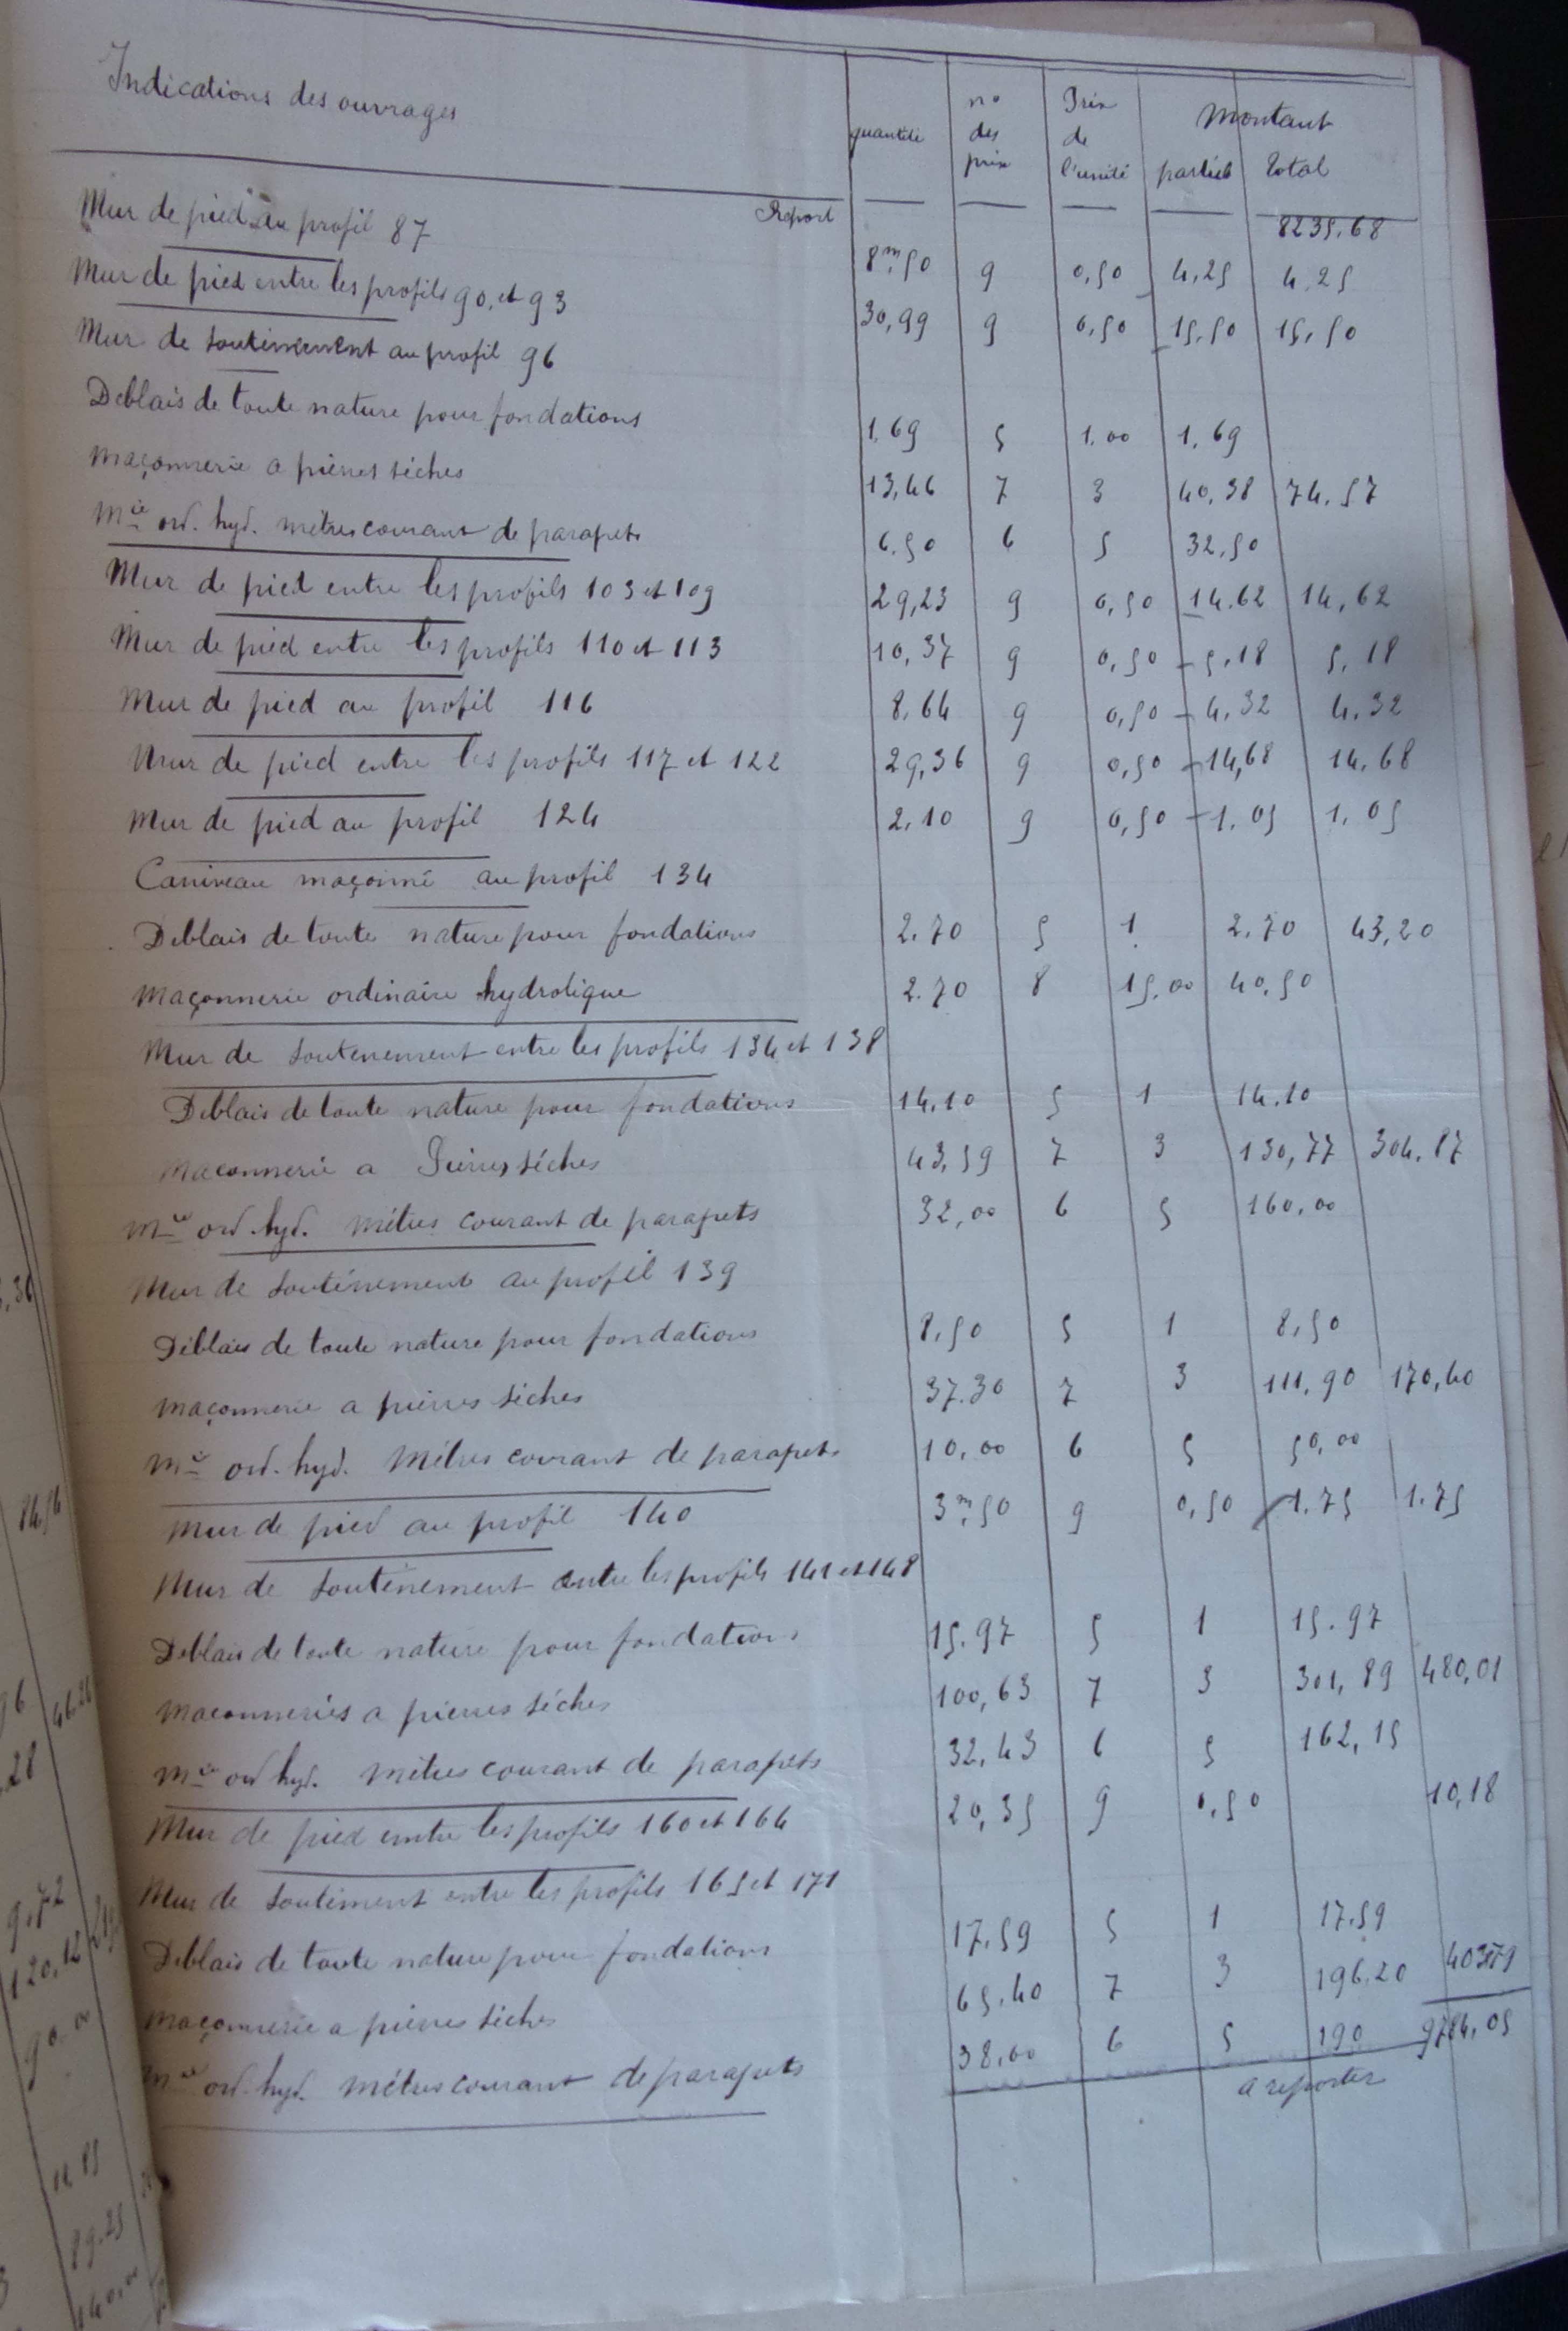 Indications des ouvrages
quantité
no des prix
Prix de l'unité
Montant
partiel
total
Report 8235.68
Mur de pied au profil 87 8m,50 9 0,50 4,25 4.25
Mur de pied entre les profils 90, et 93 30,99 9 0,50 15,50 15,50
Mur de soutinement au profil 96
Deblais de toute nature pour fondations 1,69 5 1,00 1,69
Maçonnerie a pierres séches 13,46 7 3 40,38 74.57
Mie ord. hyd. métres courant de parapets 6.50 6 5 32,50
Mur de pied entre les profils 103 et 109 29,23 9 0,50 14.62 14,62
Mur de pied entre les profils 110 et 113 10,37 9 0,50 5,18 5,18
Mur de pied au profil 116 8,64 9 0,50 4,32 4.32
Mur de pied entre les profils 117 et 122 29,36 9 0,50 14,68 14.68
Mur de pied au profil 124 2,10 9 0,50 1,05 1,05
Caniveau maçonné au profil 134
Déblais de toute nature pour fondations 2.70 5 1 2.70 43,20
Maçonnerie ordinaire hydrolique 2.70 8 15,00 40,50
Mur de soutenement entre les profils 134 et 138
Déblais de toute nature pour fondations 14,10 5 1 14.10
Maconnerie a Pierres séches 43,59 7 3 130,77 304,87
Mie ord. hyd. Métres courant de parapets 32,00 6 5 160,00
Mur de soutènement au profil 139
Déblais de toute nature pour fondations 8,50 5 1 8,50
Maçonnerie a pierres séches 37.30 7 3 111,90 170,40
Mie ord. hyd. Métres courant de parapets 10,00 6 5 50,00
Mur de pied au profil 140 3m,50 9 0,50 1.75 1.75
Mur de soutènement entre les profils 141 et 148
Déblais de toute nature pour fondations 15.97 5 1 15.97
Maconneries a pierres séches 100,63 7 3 301,89 480,01
Mie ord hyd. métres courant de parapets 32,43 6 5 162,15
Mur de pied entre les profils 160 et 164 20,35 9 0,50 10,18
Mur de soutiment entre les profils 165 et 171
Déblais de toute nature pour fondations 17,59 5 1 17.59
Maçonnerie a pierres séches 65.40 7 3 196.20
Mie ord. hyd. Métres courant de parapets 38,00 6 5 190 9784,05
a reporter